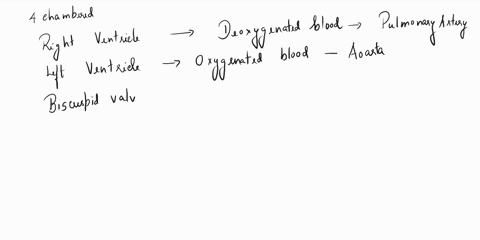 4 chambered
Right Ventricle → Deoxygenated blood → Pulmonary Artery
Left Ventricle → Oxygenated blood — Aoarta
Biscuspid valv